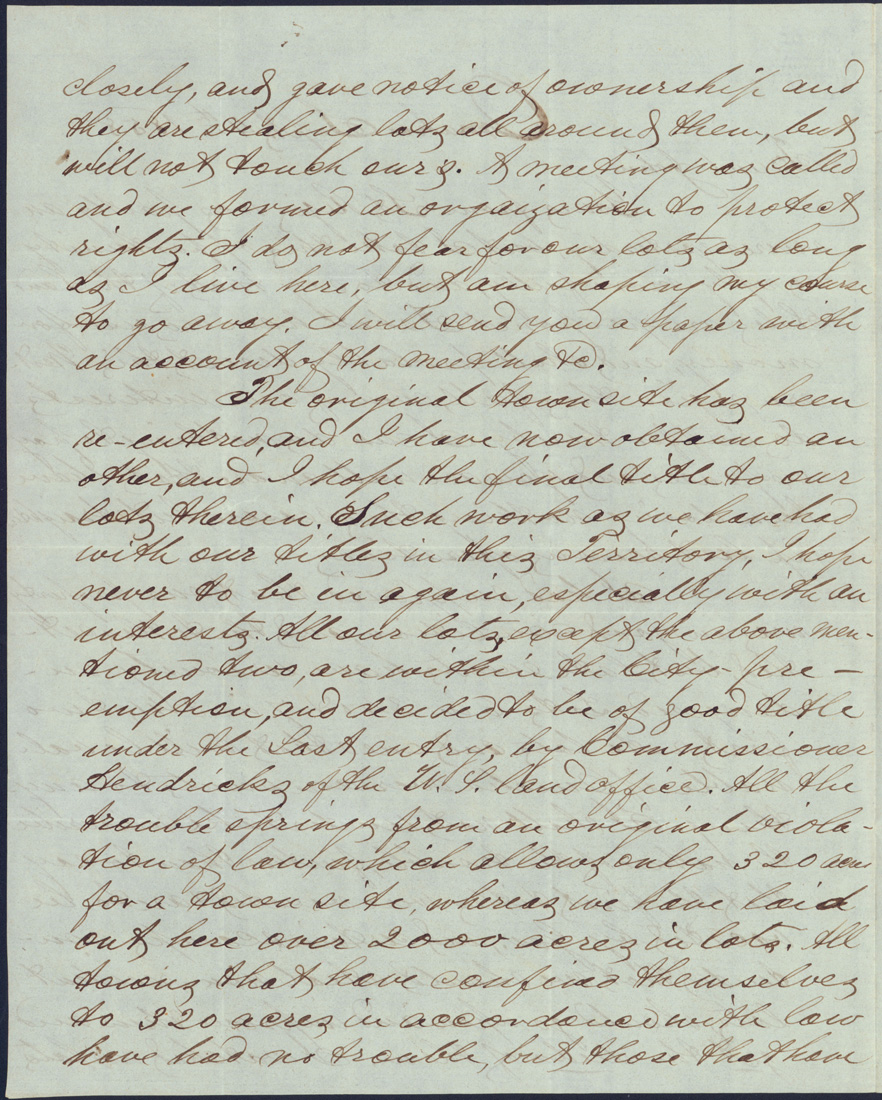 closely, and gave notice of ownership and
they are stealing lots all around them, but
will not touch ours. A meeting was called
and we formed an orgaization to protect
rights. I do not fear for our lots as long
as I live here, but am shaping my course
to go away. I will send you a paper with
an account of the meeting &c.
The original town site has been
re-entered, and I have now obtained an
other, and I hope the final title to our
lots therein. Such work as we have had
with our titles in this Territory, I hope
never to be in again, especially with an
interests. All our lots, except the above men-
tioned two, are within the City pre-
emption, and decided to be of good title
under the last entry, by Commissioner
Hendricks of the U.S. land office. All the
trouble springs from an original viola-
tion of law, which allows only 320 acres
for a town site, whereas we have laid
out here over 2000 acres in lots. All
towns that have confined themselves
to 320 acres in accordance with law
have had no trouble, but those that have